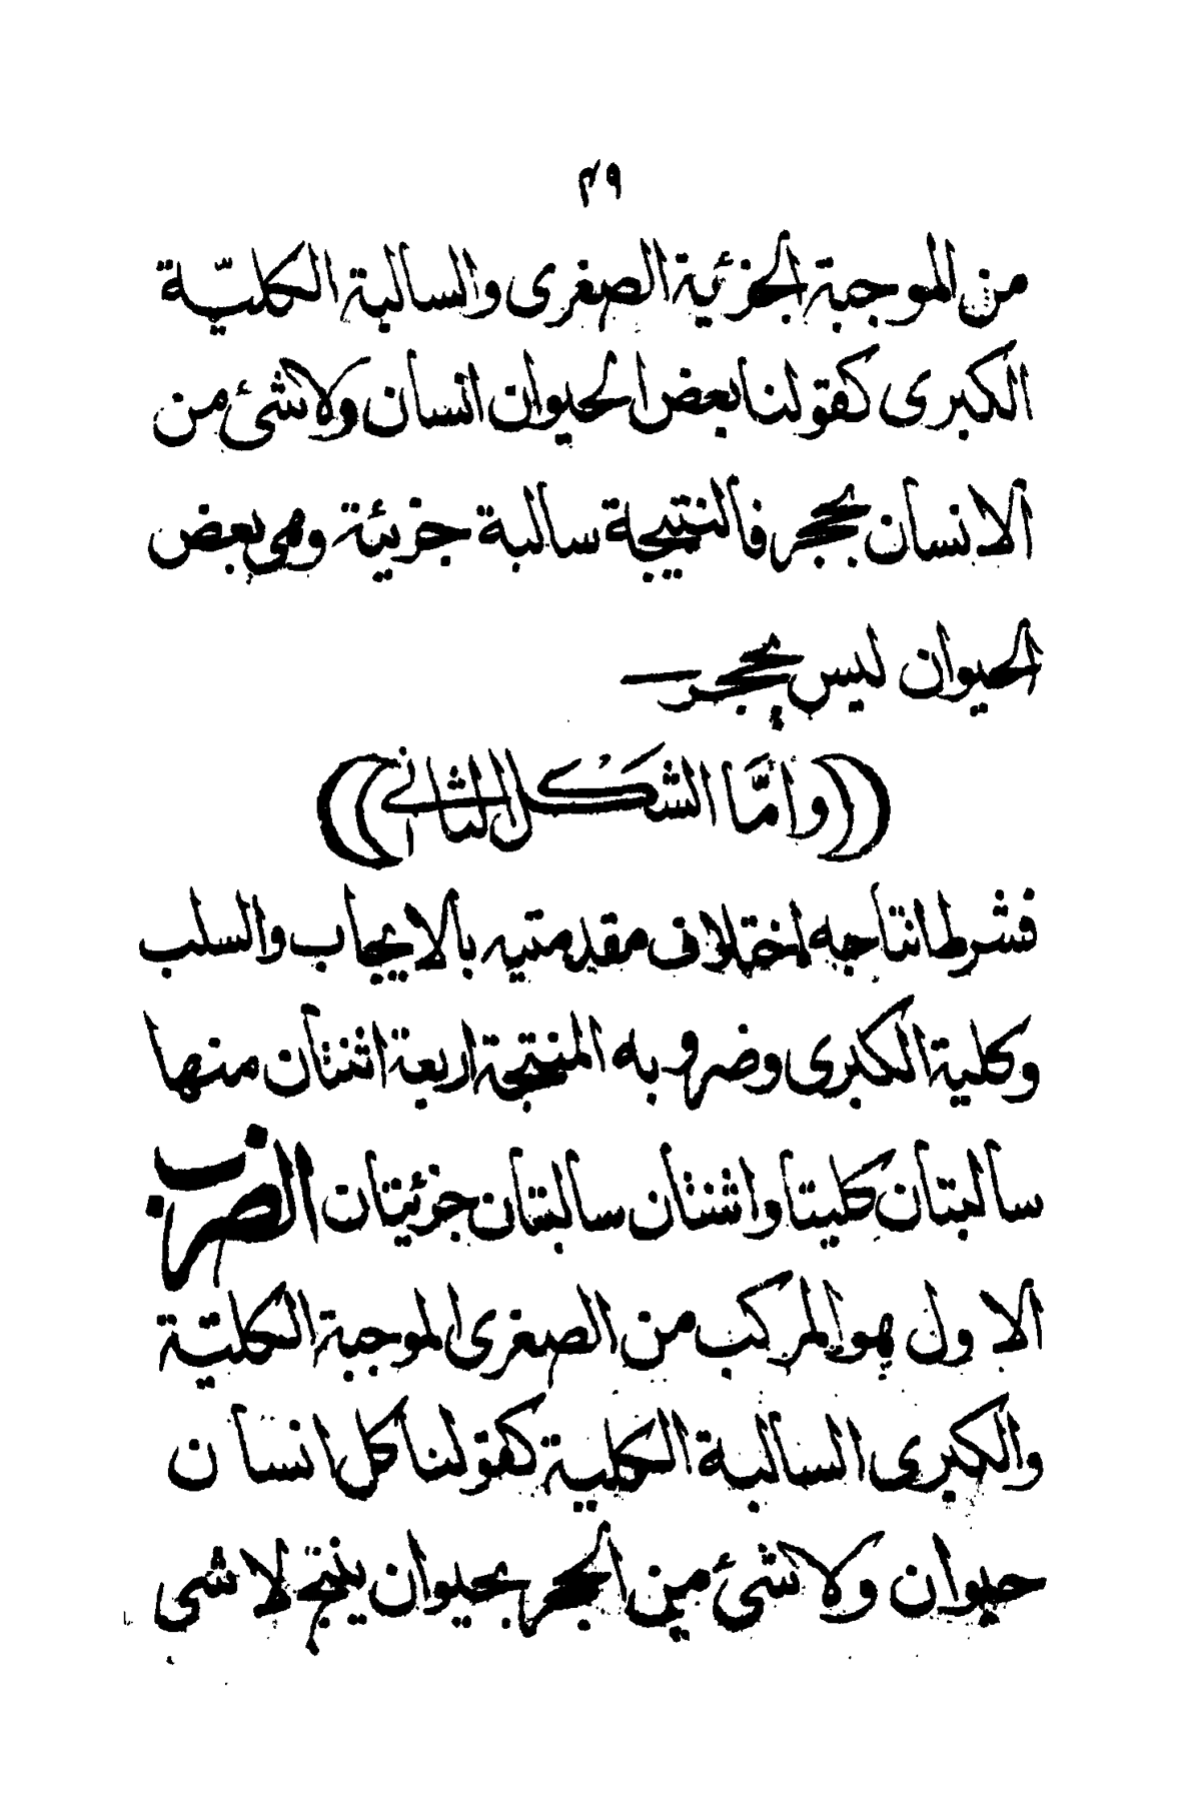 ٤٩
من الموجبة الجزئية الصغرى والسالبة الكليّة
الكبرى كقولنا بعض الحيوان انسان ولا شئ من
الانسان بحجر فالنتيجة سالبة جزئية وهي بعض
الحيوان ليس بحجر
((وامّا الشكل الثاني))
فشرط انتاجه اختلاف مقدمتيه بالايجاب والسلب
وكلية الكبرى وضروبه المنتجة اربعة اثنتان منها
سالبتان كليتا واثنتان سالبتان جزئيتان الضرب
الاول هو المركب من الصغرى الموجبة الكليّة
والكبرى السالبة الكلية كقولنا كل انسان
حيوان ولا شئ من الحجر بحيوان ينتج لا شى